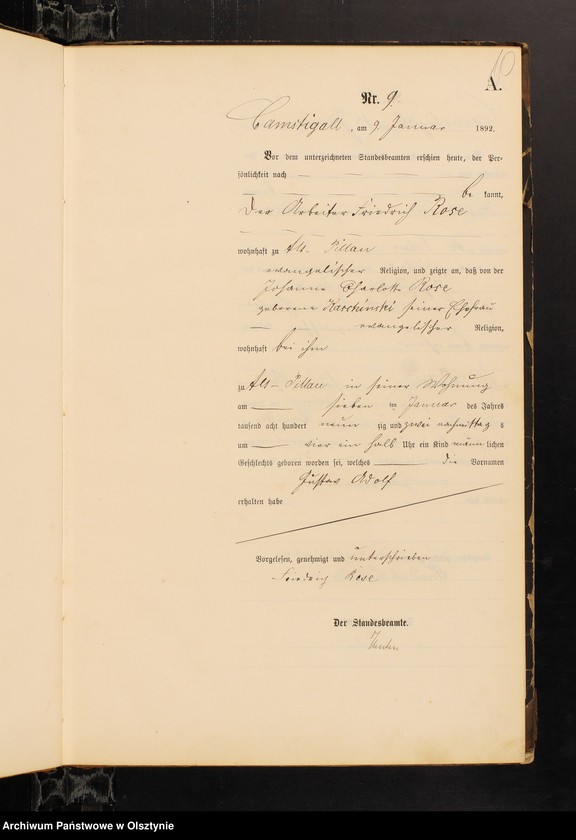 A.
Nr. 9.
Camstigall, am 9. Januar 1892.
Vor dem unterzeichneten Standesbeamten erschien heute, der Per-
sönlichkeit nach
be kannt,
der Arbeiter Friedrich Rose
wohnhaft zu Alt-Pillau
evangelischer Religion, und zeigte an, daß von der
Johanne Charlotte Rose
geborene seiner Ehefrau
evangelischer Religion,
wohnhaft bei ihm
zu Alt-Pillau in seiner Wohnung
am sieben ten Januar des Jahres
tausend acht hundert neun zig und zwei nachmittags
um vier ein halb Uhr ein Kind männlichen
Geschlechts geboren worden sei, welches die Vornamen
Gustav Adolf
erhalten habe
Vorgelesen, genehmigt und unterschrieben
Friedrich Rose
Der Standesbeamte.
Archiwum Państwowe w Olsztynie